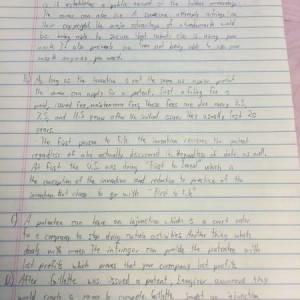 is it establishes a public record of the
The owner can also sue if someone attempts acting on
their copyright. The major advantage of
being able to
work. It also prevents you from not being able to use your
work anyways you want.
B) As long as the invention is not the same as a prior patent
the owner can apply for a patent. First a filing fee is
paid, issued fee, maintenance fees. These fees are due every 3.5,
7.5, and 11.5 years after the initial issue. They usually last 20
years.
The first person to file the invention receives the patent
regardless of who actually discovered it. Regardless of date as well.
At first the U.S. was doing "First to Invent" which is
the conception of the invention and reduction to practice of the
invention. But chose to go with "First to file"
C) A patentee can have an injunction which is a court order
to a company to stop doing certain activities. Another thing which
deals with money. The infringer can provide the patentee with
lost profits which proves that your company lost profits.
D) After Gillette was issued a patent, Energizer they
would create a razor to compete. Gillette an injunction